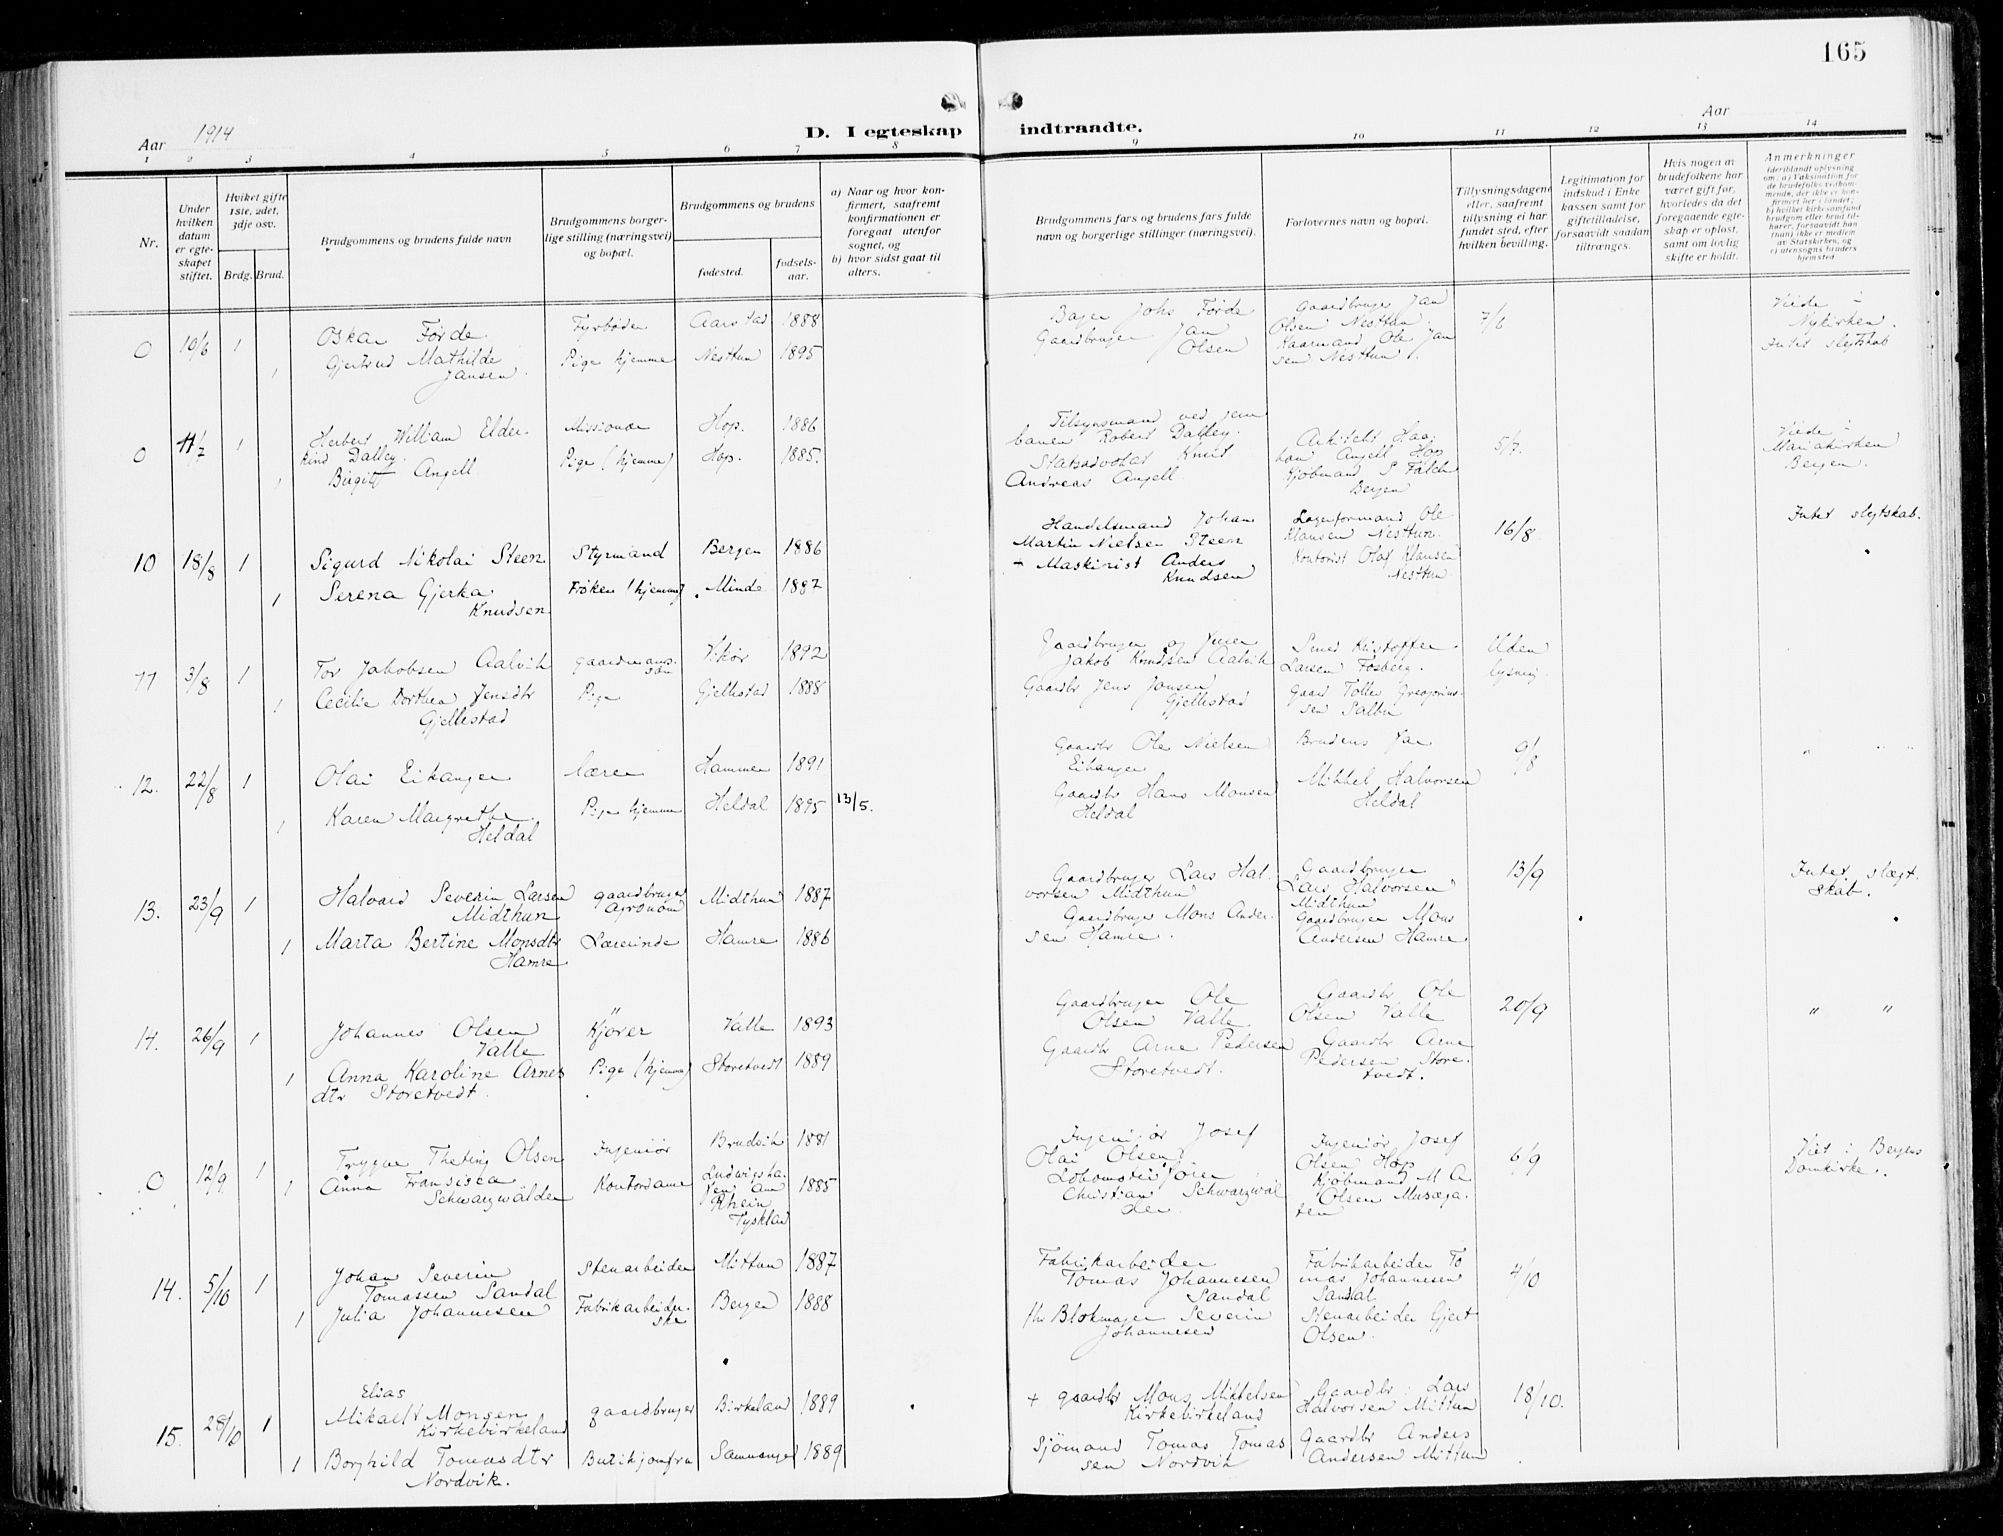 165
Aar 1914
D. I egteskap indtraadte.
Aar
1 2 3 4 5 6 7 8 9 10 11 12 13 14
Nr.
Under hvilken datum er egteskapet stiftet.
Hvilket gifte 1ste, 2det, 3dje osv.
Brdg. Brud.
Brudgommens og brudens fulde navn
Brudgommens borgerlige stilling (næringsvei) og bopæl.
Brudgommens og brudens
fødested.
fødselsaar.
a) Naar og hvor konfirmert, saafremt konfirmationen er foregaat utenfor sognet, og
b) hvor sidst gaat til alters.
Brudgommens fars og brudens fars fulde navn og borgerlige stillinger (næringsvei).
Forlovernes navn og bopæl.
Tillysningsdagene eller, saafremt tillysning ei har fundet sted, efter hvilken bevilling.
Legitimation for indskud i Enkekassen samt for giftetilladelse, forsaavidt saadan tiltrænges.
Hvis nogen av brudefolkene har været gift før, hvorledes da det foregaaende egteskap er opløst, samt om lovlig skifte er holdt.
Anmerkninger
0 10/6 1 Oskar Førde Fyrbøder Aarstad 1888
1 Gjertrud Mathilde Jansen Pige hjemme Nesttun 1895
Bager Johs Førde
Gaardbruger Jan Olsen
Gaardbruger Jan
Olsen Nesttun.
Kaarmand Ole Jan
sen Nesttun.
7/6
Viede i
Nykirken.
Intet slegtskab
0 11/7 1 Herbert William Elder-
kind Dalley. Missionær Hop. 1886
1 Birgit Angell Pige (hjemme) Hop. 1885.
Tilsynsmand ved jern
banen Robert Dalley.
Statsadvokat Knut
Andreas Angell
Arkitekt Haa
kon Angell Hop
Kjøbmand S Falch
Bergen
5/7.
Viede i
Mariakirken
Bergen.
10 18/8 1 Sigurd Nikolai Steen Styrmand Bergen 1886
1 Serena Gjerka Knudsen. Frøken (hjemme) Minde 1887
Handelsmand Johan
Martin Nielsen Steen
+ Maskinist Anders
Knudsen
Lagerformand Ole
Klausen Nesttun.
Kontorist Olaf Klausen
Nesttun.
16/8
Intet slegtskab.
11 3/8 1 Tor Jakobsen Aalvik gaardmans-
søn Vikør 1892
1 Cecilie Dorthea Jensdtr
Gjellestad Pige Gjellestad 1888
Gaardbruger og
Jakob Knudsen Aalvik
Gaardbr Jens Jansen
Gjellestad
Smed Kristoffer
Larsen Fosberg.
Gaard Tollef Gregorius-
sen Salbu
Uden
lysning.
12. 22/8 1 Olai Eikanger lærer Hammer 1891
1 Karen Margrethe
Heldal Pige hjemme Heldal 1895 13/5.
Gaardbr Ole Nielsen
Eikanger
Gaardbr Hans Monsen
Heldal
Brudens Far
Mikkel Halvorsen
Heldal
9/8
" " "
13. 23/9 1 Halvard Severin Larsen
Midthun gaardbruger
agronom Midthun 1887
1 Marta Bertine Monsdtr
Hamre Lærerinde Hamre 1886
Gaardbruger Lars Hal-
vorsen Midthun
Gaardbruger Mons Ander-
sen Hamre.
Gaardbruger
Lars Halvorsen
Midthun
Gaardbruger Mons
Andersen Hamre
13/9
Intet slægt-
skab.
14. 26/9 1 Johannes Olsen
Valle Kjører Valle 1893
1 Anna Karoline Arnes
dtr Storetvedt Pige (hjemme) Storetvedt 1889
Gaardbruger Ole
Olsen Valle.
Gaardbr Arne Pedersen
Storetvedt.
Gaardbr Ole
Olsen Valle
Gaardbr Arne
Pedersen Store-
tvedt.
20/9
" "
0 12/9 1 Trygve Theting Olsen Ingeniør Bruvik 1881
1 Anna Fransisca
Schwarzwälder Kontordame Ludwigsha-
fen am
Rhein
Tyskland 1885
Ingeniør Josef
Olai Olsen.
Lokomotivfører
Christian Schwarzwäl
der.
Ingeniør Josef
Olsen Hop
Kjøbmand M A
Olsen Musæga-
ten
6/9
Viet i Bergens
Domkirke.
14. 5/10 1 Johan Severin
Tomassen Sandal Stenarbeider Mittun 1887
1 Julia Johannesen Fabrikarbeider-
ske Bergen 1888
Fabrikarbeider
Tomas Johannesen
Sandal
fhv Blokmager Severin
Johannesen
Fabrikarbeider To
mas Johannesen
Sandal
Stenarbeider Gjert
Olsen.
4/10
15. 28/10 1 Elias
Mikael Monsen
Kirkebirkeland gaardbruger Birkeland 1889
1 Borghild Tomasdtr
Nordvik. Butikjomfru Samnanger 1889
+ gaardbr Mons Mikkelsen
Kirkebirkeland
Sjømand Tomas Tomas
sen Nordvik
Gaardbr. Lars
Halvorsen Mittun
Gaardbr Anders
Andersen Mittun
18/10.